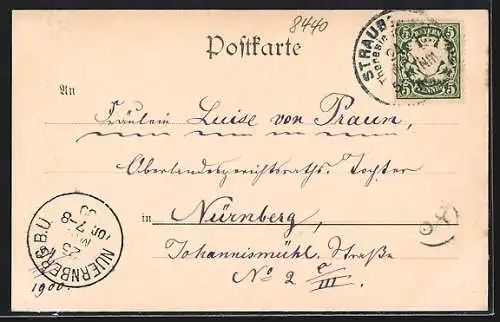 8440
Postkarte
STRAUB
BAYERN
5 5
PFENNIG
An
Fräulein Luise von Praun,
Oberlandesgerichtsraths. Tochter
in Nürnberg,
Johannismühl. Straße
No 2 a/III.
NUERNBERG B.U
23
VOR. 7-8
00
1900.